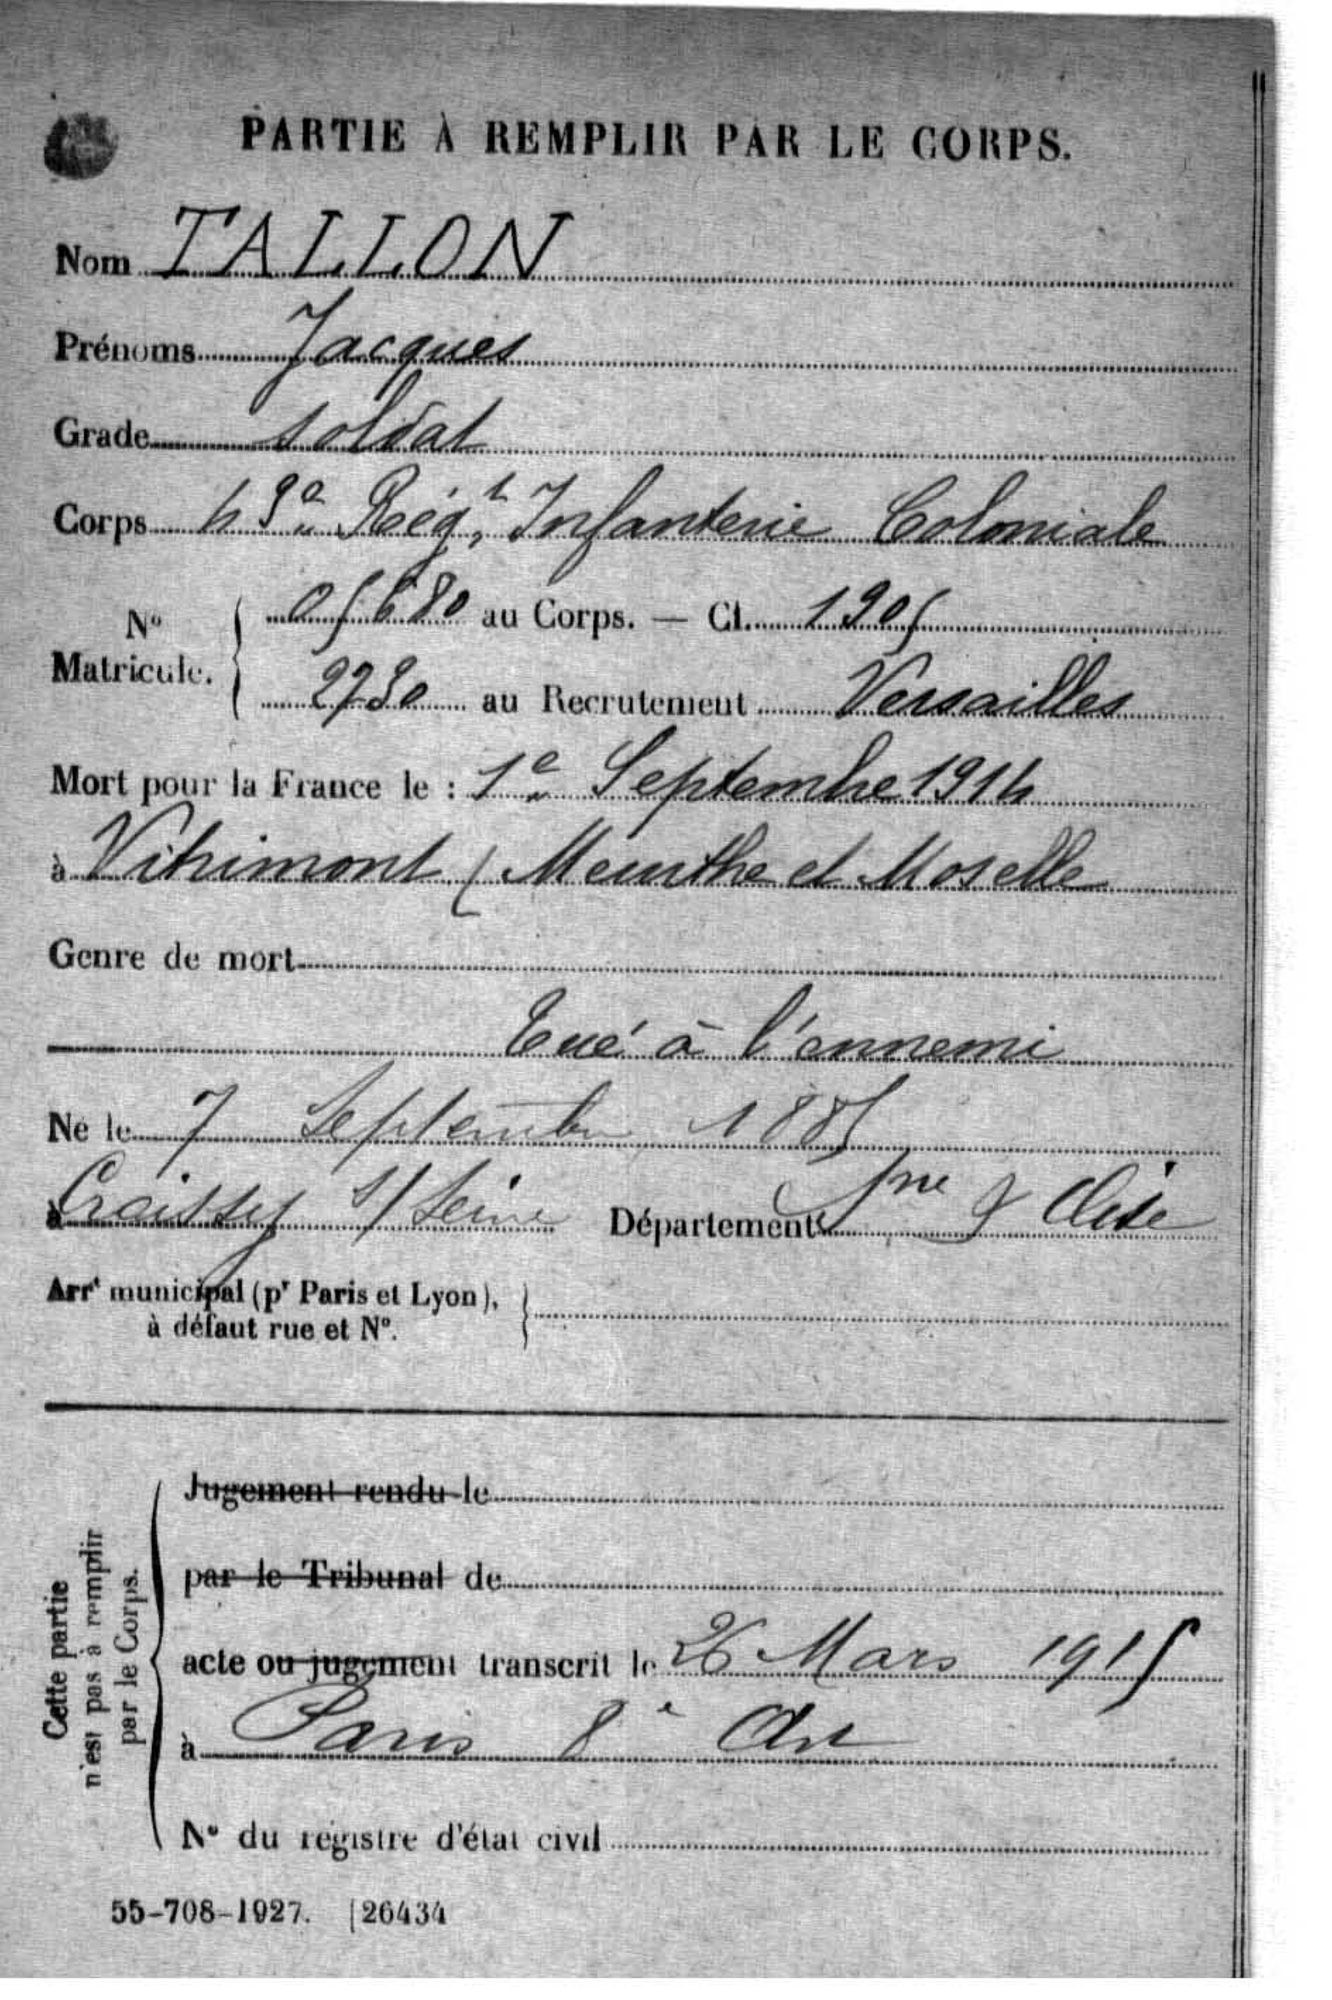 PARTIE À REMPLIR PAR LE CORPS.
Nom TALLON
Prénoms Jacques
Grade Soldat
Corps 43e Régt Infanterie Coloniale
No Matricule. { 05680 au Corps. — Cl. 1905
2730 au Recrutement Versailles
Mort pour la France le : 1e Septembre 1914
à Vitrimont ( Meurthe et Moselle
Genre de mort
Tué à l'ennemi
Né le 7 Septembre 1885
à Croissy s/ Seine Département Sne & Oise
Arrt municipal (pr Paris et Lyon),
à défaut rue et No.
Cette partie
n'est pas à remplir
par le Corps.
Jugement rendu le
par le Tribunal de
acte ou jugement transcrit le 26 Mars 1915
à Paris 8e Art
No du registre d'état civil
55-708-1927. [26434